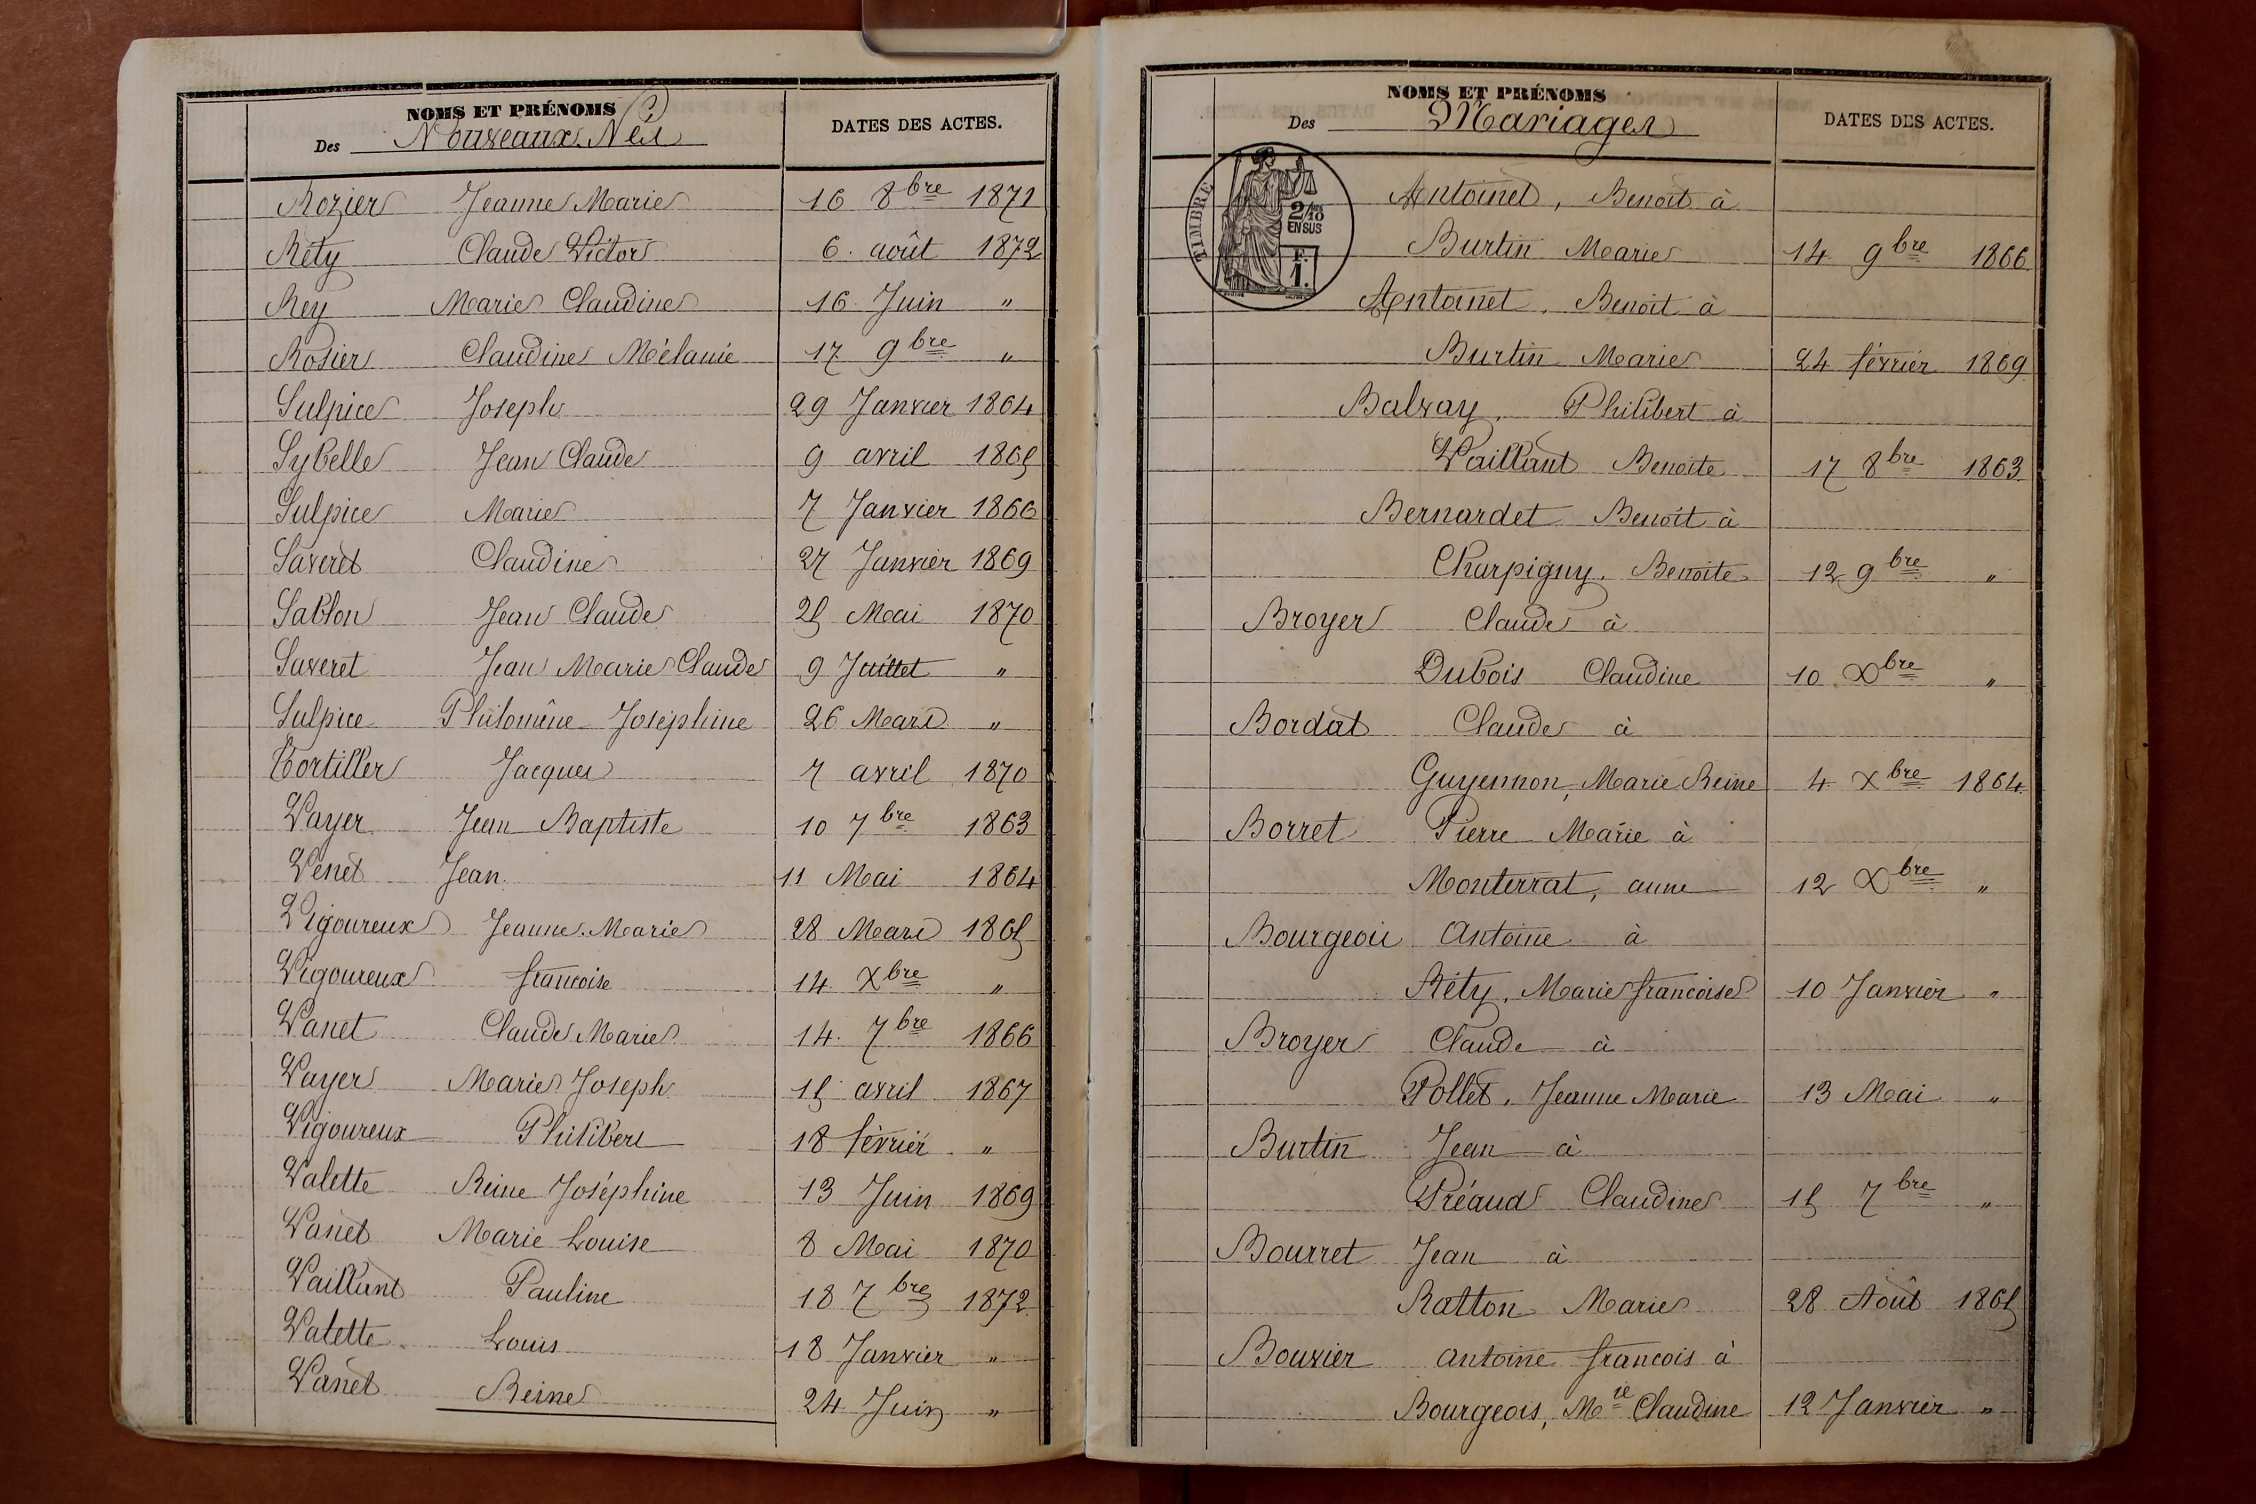 NOMS ET PRÉNOMS
Des Nouveaux Nés
DATES DES ACTES.
Rozier Jeanne Marie 16 8bre 1871
Réty Claude Victor 6. août 1872
Rey Marie Claudine 16. Juin "
Rosier Claudine Mélanie 17 9bre "
Sulpice Joseph 29 Janvier 1864
Sybelle Jean Claude 9 avril 1865
Sulpice Marie 7 Janvier 1866
Saveret Claudine 27 Janvier 1869
Sablon Jean Claude 25 Mai 1870
Saveret Jean Marie Claude 9 Juillet "
Sulpice Philomène Joséphine 26 Mars "
Tortiller Jacques 7 avril 1870
Vayer Jean Baptiste 10 7bre 1863
Venet Jean 11 Mai 1864
Vigoureux Jeanne Marie 28 Mars 1865
Vigoureux francoise 14 Xbre "
Vanet Claude Marie 14. 7bre 1866
Vayer Marie Joseph 15 avril 1867
Vigoureux Philibert 18 février "
Valette Reine Joséphine 13 Juin 1869
Vanet Marie Louise 8 Mai 1870
Vaillant Pauline 18 7bre 1872
Valette Louis 18 Janvier "
Vanet Reine 24 Juin "
NOMS ET PRÉNOMS
Des Mariages
DATES DES ACTES.
TIMBRE
2/10
EN SUS
F.
1.
Antoinet, Benoit à
Burtin Marie 14 9bre 1866
Antoinet, Benoit à
Burtin Marie 24 février 1869
Balvay, Philibert à
Vaillant Benoite 17 8bre 1863
Bernardet Benoît à
Charpigny, Benoite 12 9bre "
Broyer Claude à
Dubois Claudine 10 Xbre "
Bordat Claude à
Guyennon, Marie Reine 4 Xbre 1864
Borret Pierre Marie à
Monterrat, anne 12 Xbre "
Bourgeois Antoine à
Réty, Marie francoise 10 Janvier "
Broyer Claude à
Pollet, Jeanne Marie 13 Mai "
Burtin Jean à
Préaud Claudine 15 7bre "
Bourret Jean à
Ratton Marie 28 Août 1865
Bouvier antoine francois à
Bourgeois, Mrie Claudine 12 Janvier "